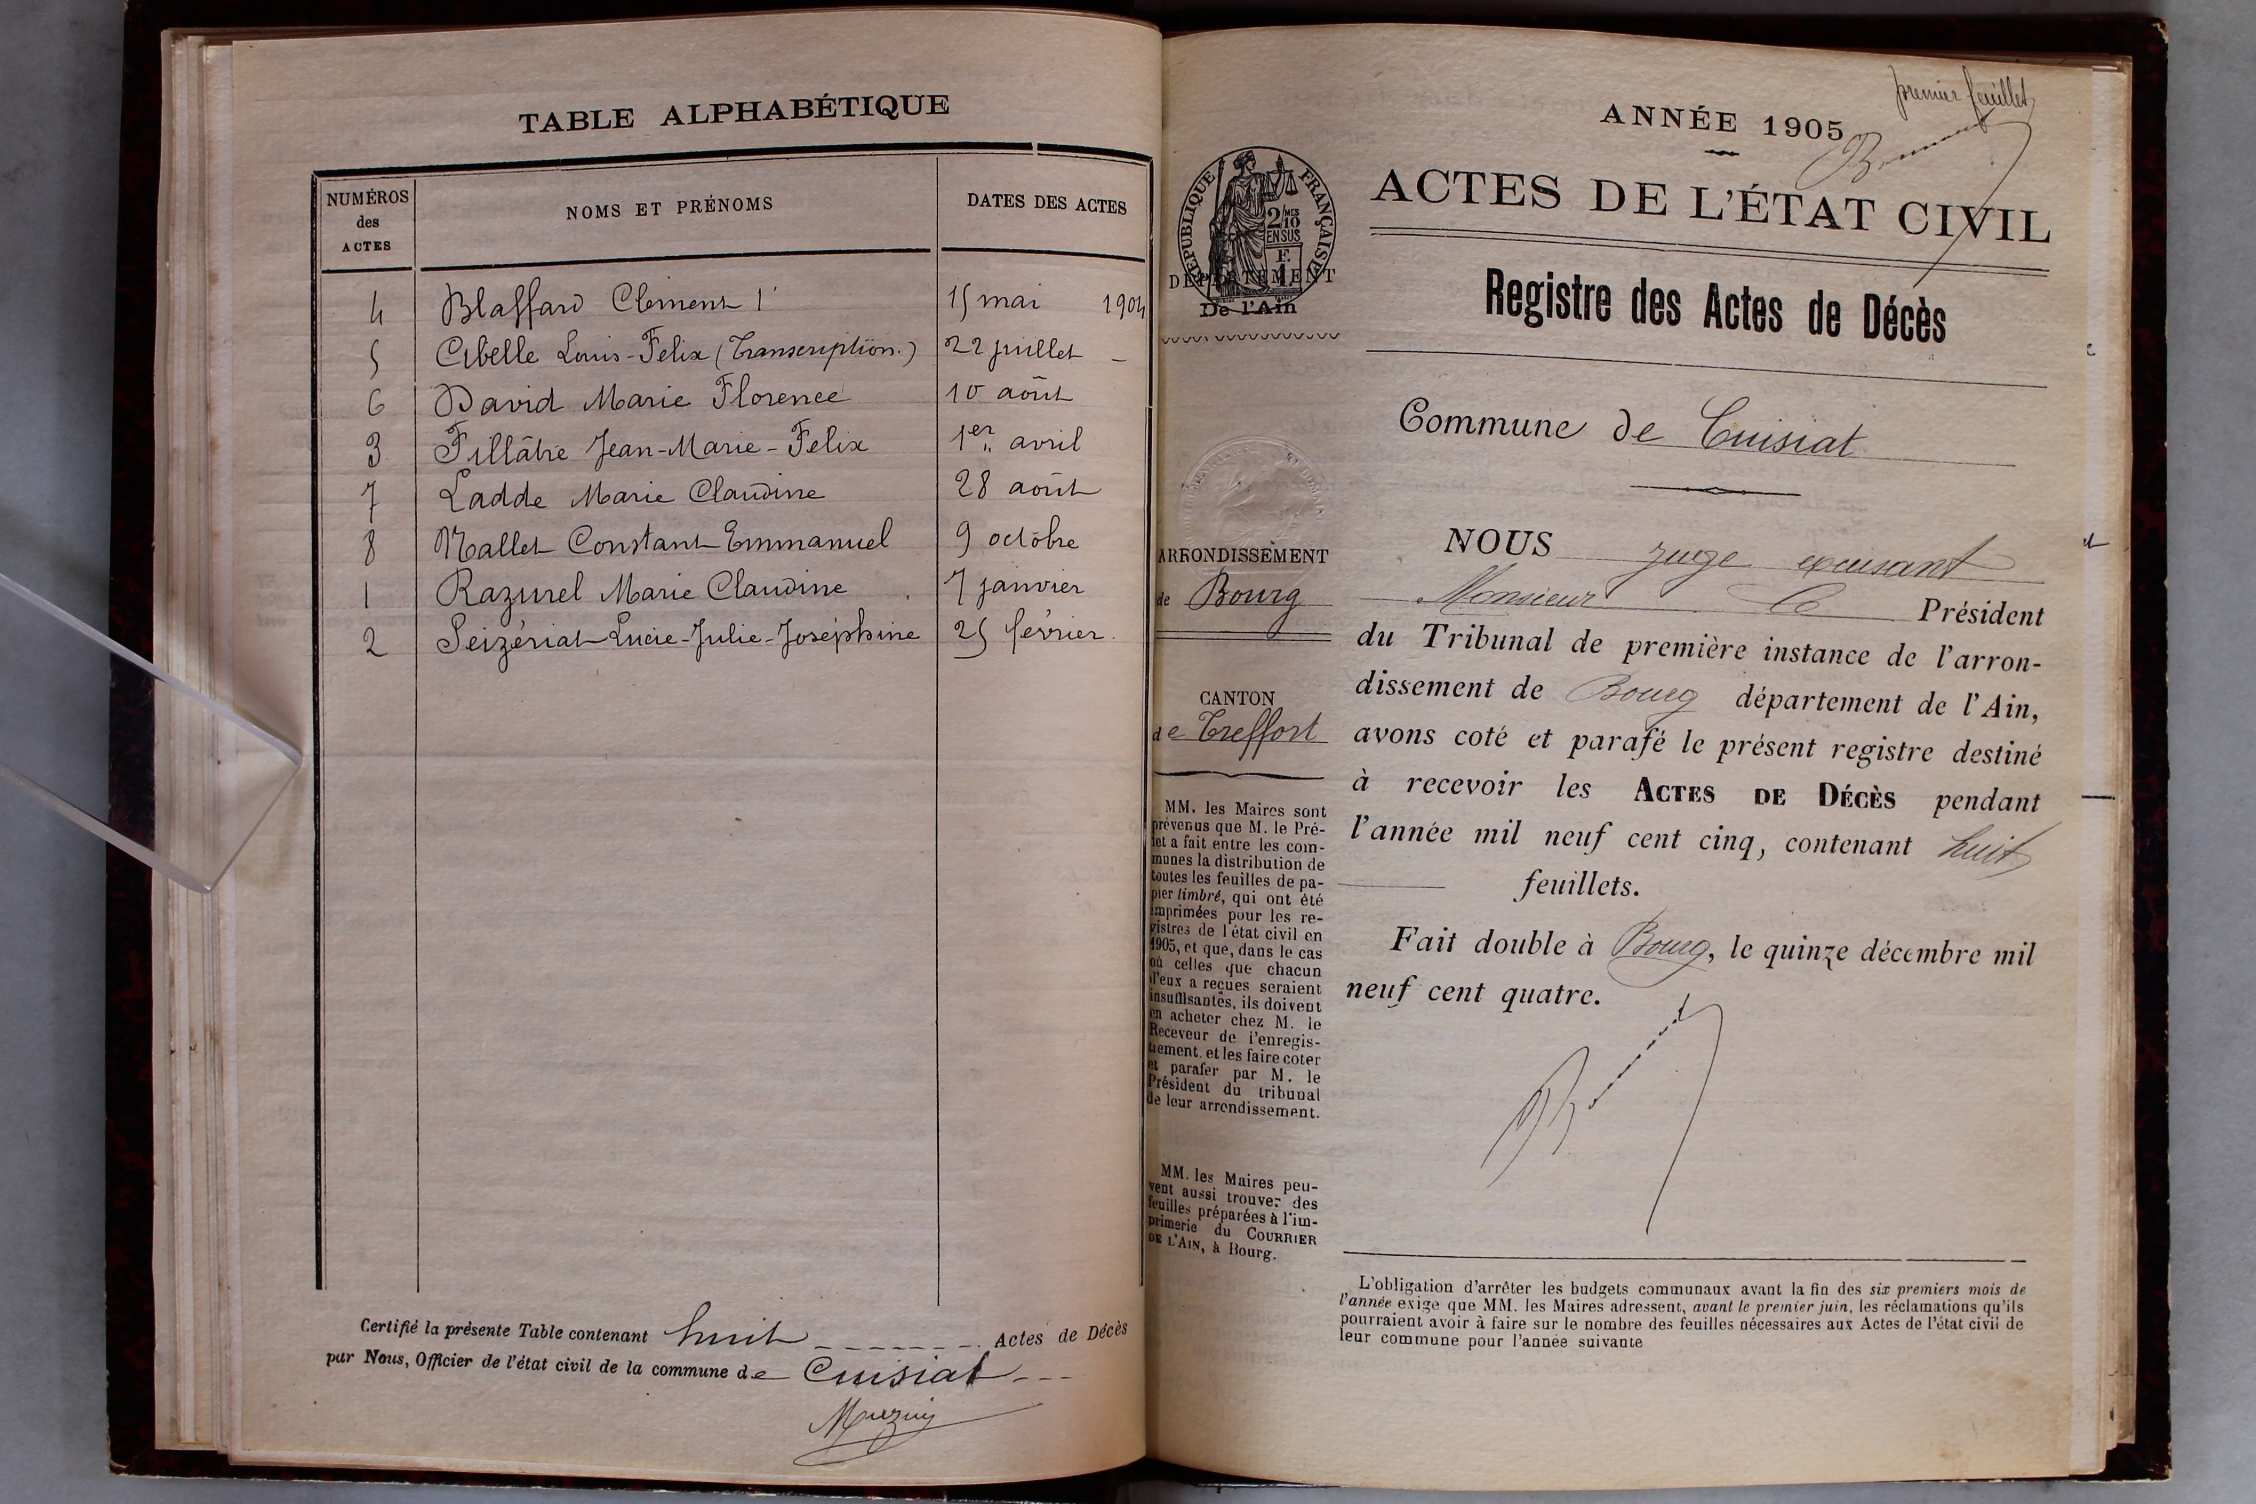 TABLE ALPHABÉTIQUE
NUMÉROS
des
ACTES
NOMS ET PRÉNOMS
DATES DES ACTES
4 Blaffard Clément 15 mai 1904
5 Cibelle Louis-Felix (Transcription.) 22 juillet –
6 David Marie Florence 10 août
3 Fillâtre Jean-Marie-Felix 1er avril
7 Ladde Marie Claudine 28 août
8 Mallet Constant Emmanuel 9 octobre
1 Razurel Marie Claudine 7 janvier
2 Seizériat Lucie-Julie-Joséphine 25 février
Certifié la présente Table contenant huit Actes de Décès
par Nous, Officier de l'état civil de la commune de Cuisiat
premier feuillet
ANNÉE 1905
ACTES DE L'ÉTAT CIVIL
Registre des Actes de Décès
RÉPUBLIQUE FRANÇAISE
2/10 MES
EN SUS
F.
1.
DÉPARTEMENT
De l'Ain
ARRONDISSEMENT
de Bourg
CANTON
de Treffort
MM. les Maires sont
prévenus que M. le Pré-
fet a fait entre les com-
munes la distribution de
toutes les feuilles de pa-
pier timbré, qui ont été
imprimées pour les re-
gistres de l'état civil en
1905, et que, dans le cas
où celles que chacun
d'eux a reçues seraient
insuffisantes, ils doivent
en acheter chez M. le
Receveur de l'enregis-
trement, et les faire coter
et parafer par M. le
Président du tribunal
de leur arrondissement.
MM. les Maires peu-
vent aussi trouver des
feuilles préparées à l'im-
primerie du COURRIER
DE L'AIN, à Bourg.
Commune de Cuisiat
NOUS juge excusant
Monsieur le Président
du Tribunal de première instance de l'arron-
dissement de Bourg département de l'Ain,
avons coté et parafé le présent registre destiné
à recevoir les ACTES DE DÉCÈS pendant
l'année mil neuf cent cinq, contenant huit
feuillets.
Fait double à Bourg, le quinze décembre mil
neuf cent quatre.
L'obligation d'arrêter les budgets communaux avant la fin des six premiers mois de
l'année exige que MM. les Maires adressent, avant le premier juin, les réclamations qu'ils
pourraient avoir à faire sur le nombre des feuilles nécessaires aux Actes de l'état civil de
leur commune pour l'année suivante